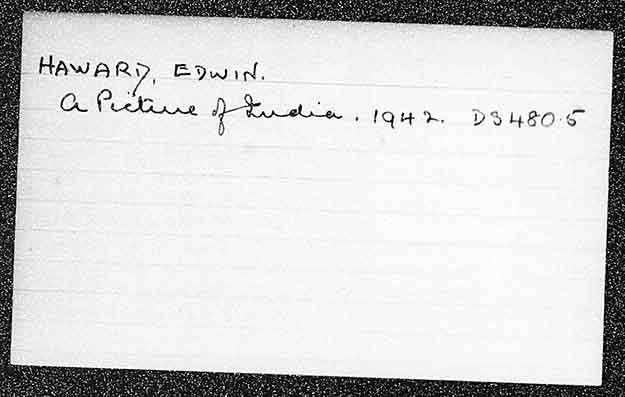 HAWARD, EDWIN.
A Picture of India. 1942. DS480.5